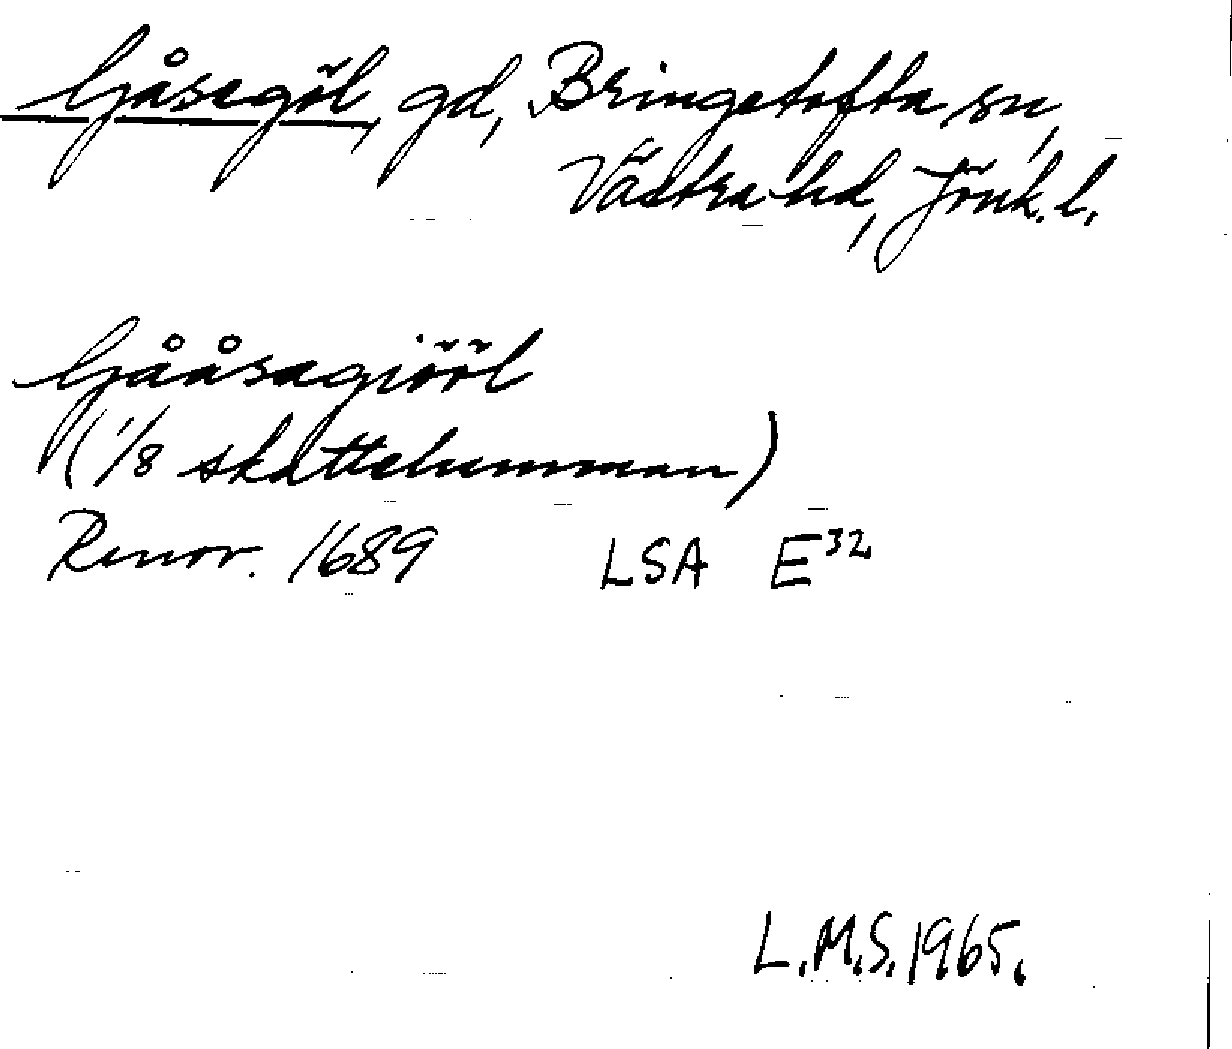 Gåsegöl, gd, Bringetofta sn,
Västra hd, Jönk. l.
Gååsagiööl
(1/8 skattehemman)
Renov. 1689 LSA E32
L.M.S. 1965.